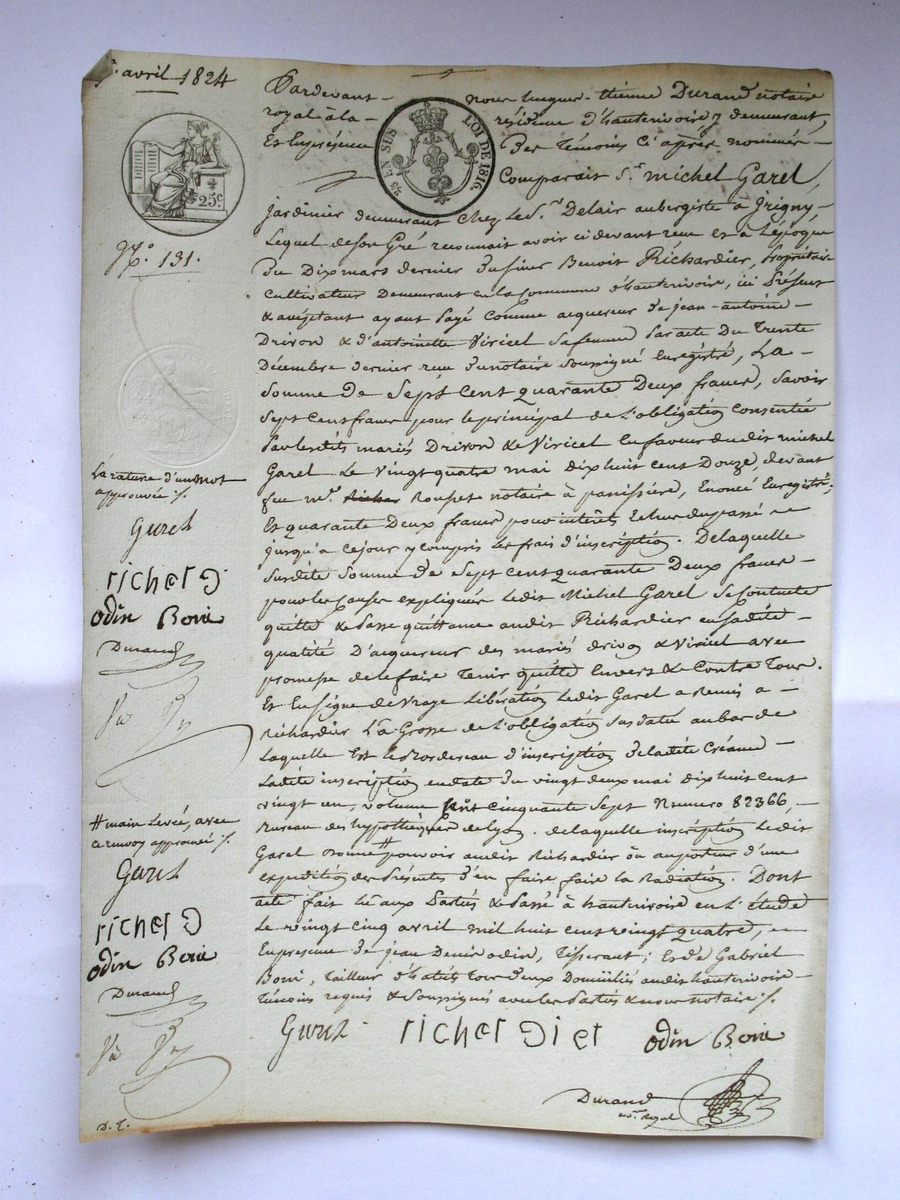 avril 1824
Pardevant nous hugues-thienne Durand notaire
royal à la résidence d'hauterivoire y demeurant,
Et En présence Des Témoins Ci après nommés
25 EN SUS LOI DE 1816.
25c
Comparait Sr. michel Garel,
Jardinier demeurant Chez le Sr. Delair aubergiste à Irigny
Lequel de son Gré reconnait avoir ci devant reçu et à L'époque
No. 131.
Du Dix mars dernier Du sieur Benoit Richardier, propriétaire
Cultivateur Demeurant en la Commune d'hauterivoire, ici Présent
& acceptant ayant Payé Comme acquereur de jean-antoine
Drivon & d'antoinette Viricel sa femme Par acte Du Trente
Décembre dernier reçu du notaire soussigné Enregistré, La
Somme De Sept Cent quarante Deux francs, Savoir
Sept Cent francs pour le principal de L'obligation Consentie
Par lesdits mariés Drivon & Viricel En faveur dudit michel
Garel Le vingt quatre mai dix huit cent Douze, devant
La rature d'un mot
approuvée /.
feu me. Roupet notaire à panissière, Enoncé Enregistré;
Et quarante Deux francs pour intérêts
jusqu'à ce jour y compris les frais d'inscription. De laquelle
Susdite Somme De Sept cent quarante Deux francs
pour les Causes expliquées Ledit Michel Garel Se Contente
quitte & Passe quittance audit Richardier en sadite
qualité D'acquereur des mariés drivon & Viricel avec
promesse de le faire Tenir quitte Envers & Contre Tous.
Garel
richerd
odin Boni
Durand
Et En Signe de Vraye Libération Ledit Garel a remis à
Richardier La Grosse de L'obligation Susdatée au bas de
Laquelle Est le Bordereau d'inscription de ladite Créance
Ladite inscription en date du vingt deux mai dix huit cent
vingt un, volume cinquante Sept Numero 82366,
Bureau des hypothèques de Lyon. de laquelle inscription Ledit
# main Levée, avec
ce renvoy approuvé /.
Garel donne # pouvoir audit Richardier ou au porteur d'une
expédition des Présentes d'en faire faire la Radiation. Dont
acte fait Lu aux Parties & Passé à hauterivoire en L'étude
Le vingt cinq avril mil huit cent vingt quatre, en
En présence De jean Denis odin, Tisserant; Et de Gabriel
Boni, Tailleur d'habits Tous deux Domiciliés audit hauterivoire
Témoins requis & Soussignés avec les Parties & nous notaire /.
Garel
richerd
odin Boni
Durand
Garel richerdier odin Boni
Durand
no. Royal
D. T.